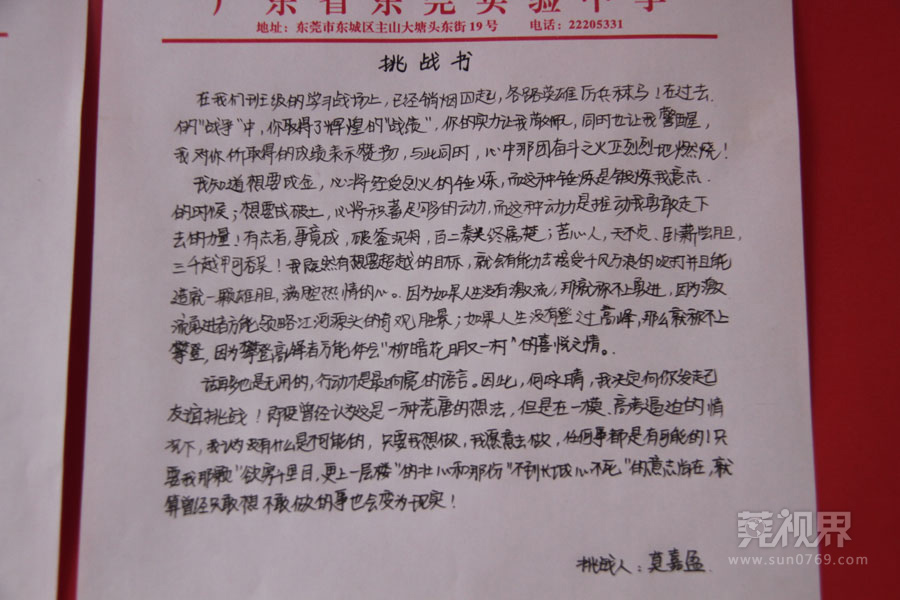 广东省东莞实验中学
地址：东莞市东城区主山大塘头东街19号 电话：22205331
挑战书
在我们班级的学习战场上，已经销烟四起，各路英雄厉兵秣马！在过去
的"战争"中，你取得了辉煌的"战绩"，你的实力让我敬佩，同时也让我警醒，
我对你所取得的成绩表示赞扬，与此同时，心中那团奋斗之火正烈烈地燃烧！
我知道想要成金，必将经受烈火的锤炼，而这种锤炼是锻炼我意志
的时候；想要成破土，必将积蓄足够的动力，而这种动力是推动我勇敢走下
去的力量！有志者，事竟成，破釜沉舟，百二秦关终属楚；苦心人，天不负，卧薪尝胆，
三千越甲可吞吴！我既然有想要超越的目标，就会有能力去接受千风万浪的吹打并且能
造就一颗雄胆，满腔热情的心。因为如果人生没有激流，那就称不上勇进，因为激
流勇进者方能领略江河源头的奇观胜景；如果人生没有登过高峰，那么就称不上
攀登，因为攀登高峰者方能体会"柳暗花明又一村"的喜悦之情。
话多也是无用的，行动才是最响亮的语言。因此，何咏晴，我决定向你发起
友谊挑战！即使曾经认为这是一种荒唐的想法，但是在一模、高考逼迫的情
况下，我认为没有什么是不可能的，只要我想做，我愿意去做，任何事都是有可能的！只
要我那颗"欲穷千里目，更上一层楼"的壮心和那份"不到长城心不死"的意志尚在，就
算曾经只敢想不敢做的事也会变为现实！
挑战人：莫嘉盈
莞视界
www.sun0769.com